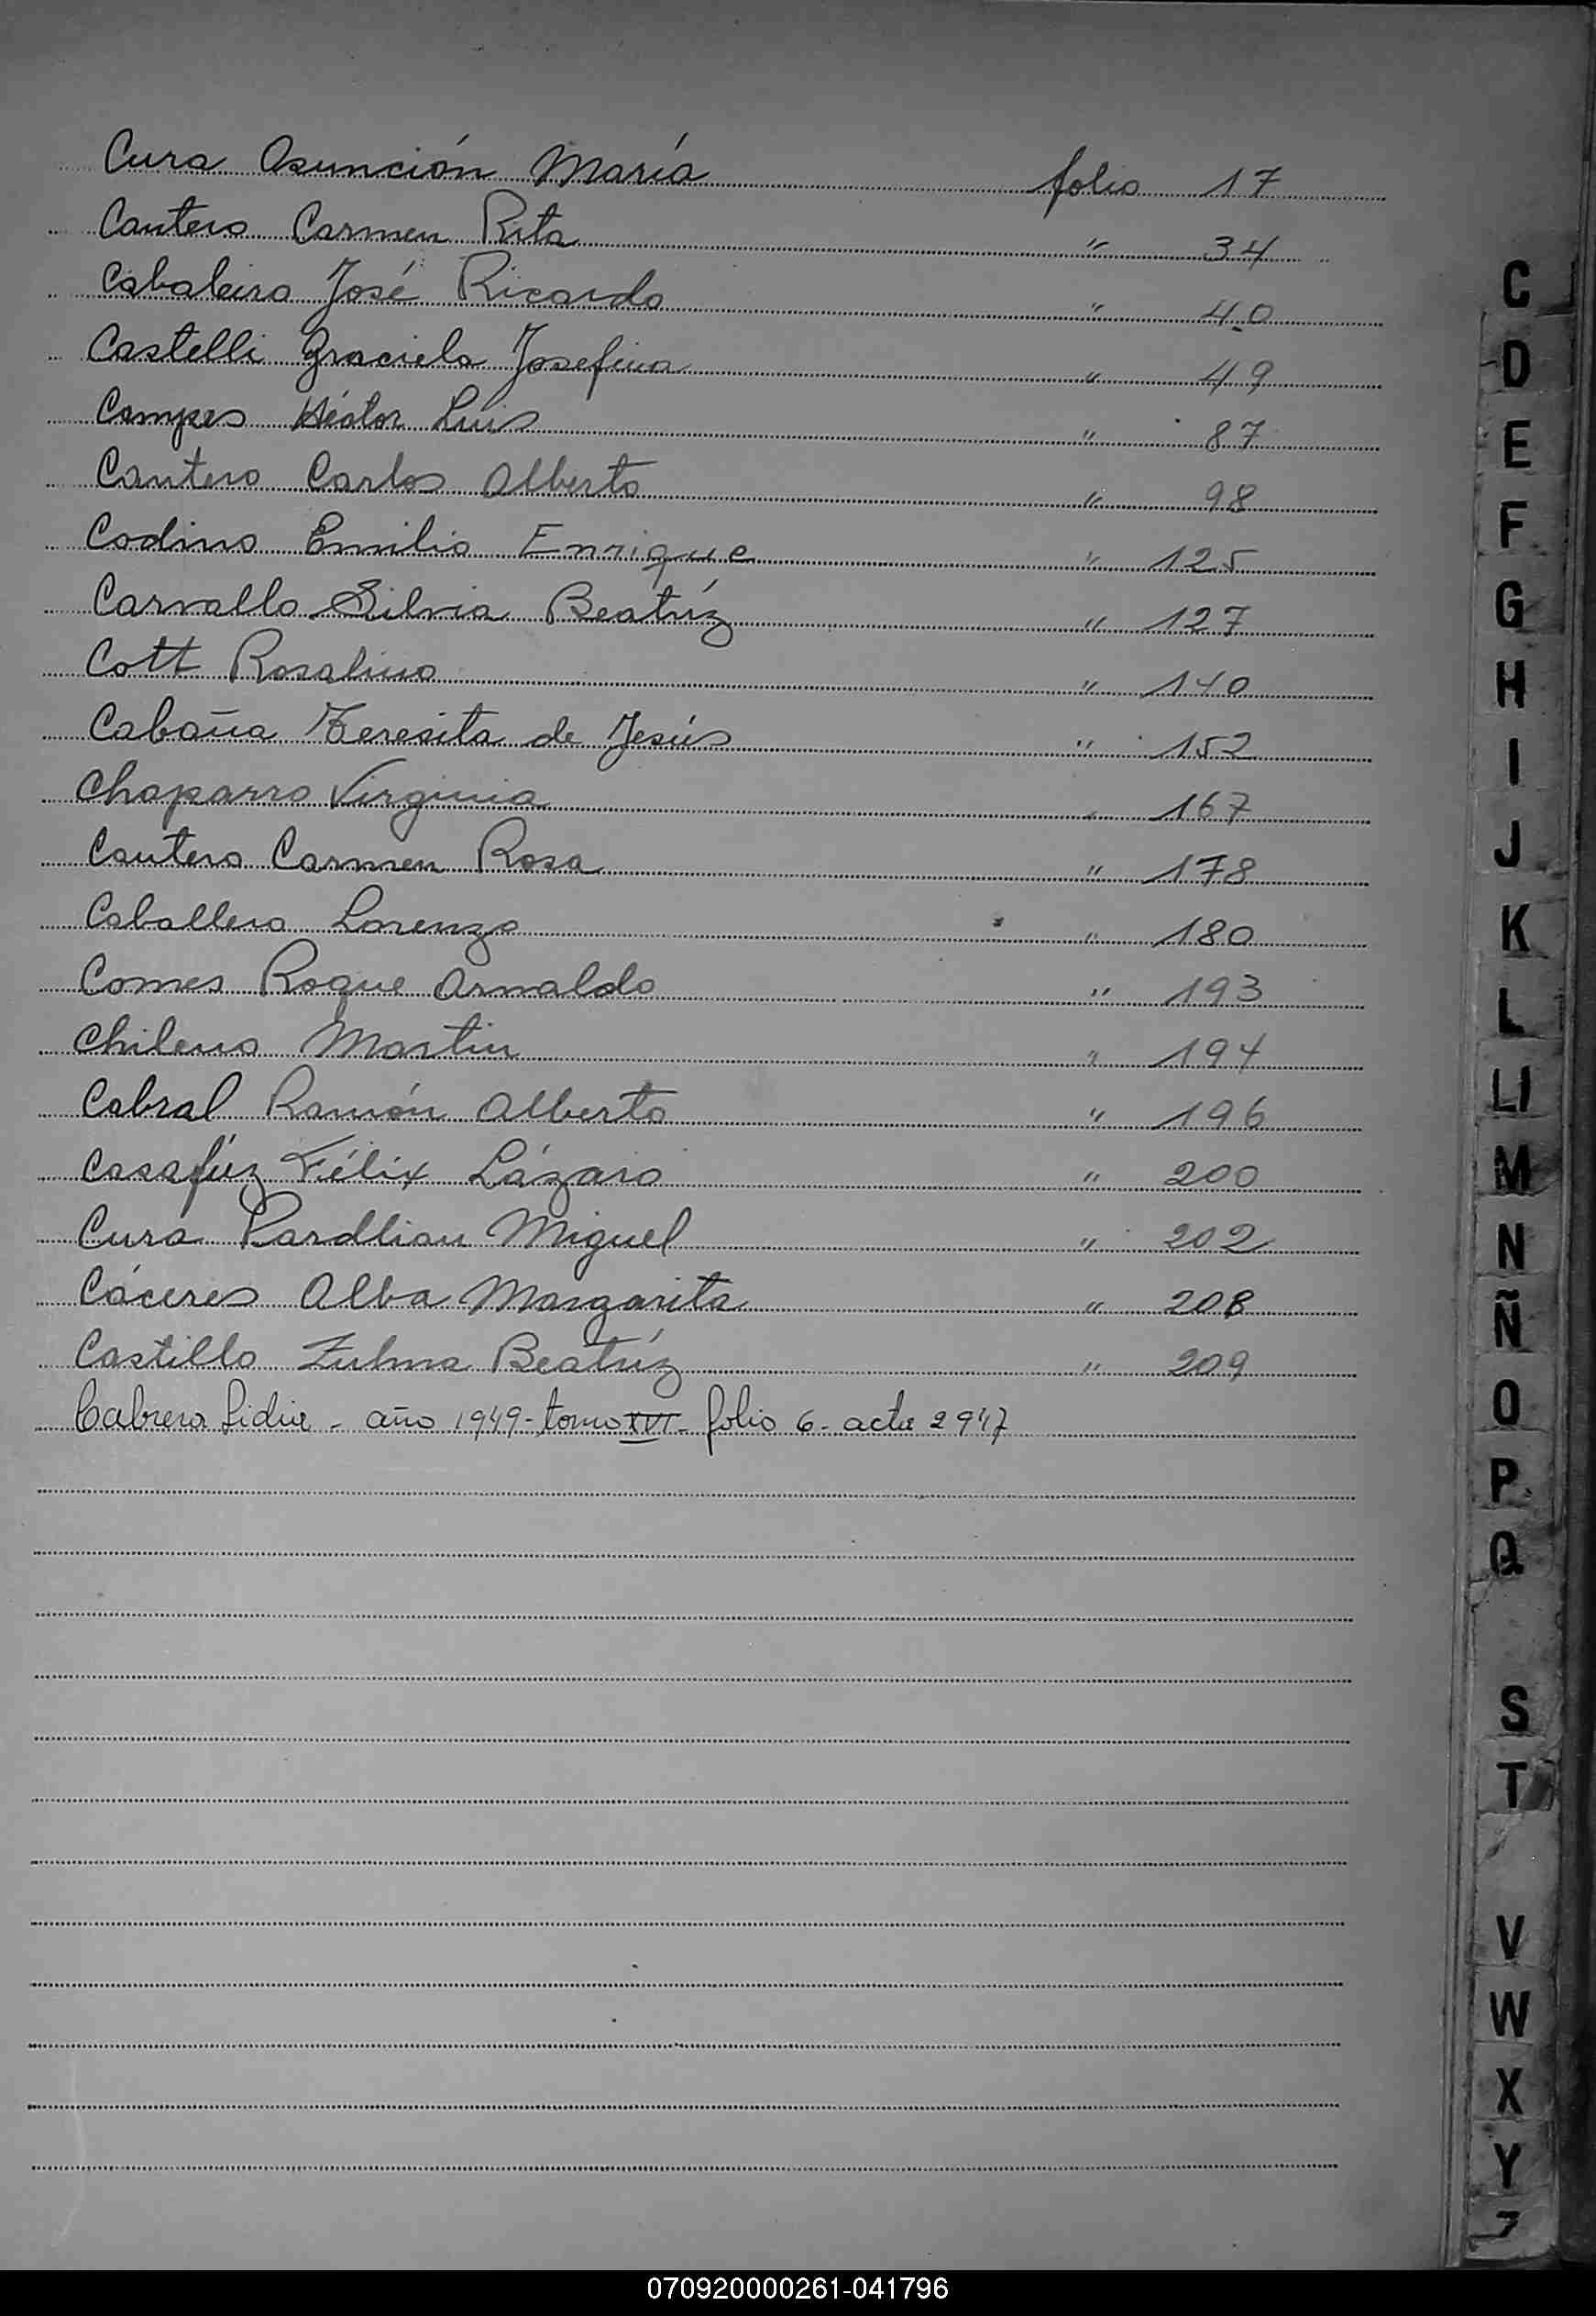 Cura Asunción María folio 17
Cantero Carmen Rita " 34
Cabaleiro José Ricardo " 40
Castelli Graciela Josefina " 49
Compes Héctor Luis " 87
Cantero Carlos Alberto " 98
Codino Emilio Enrique " 125
Carvallo Silvia Beatríz " 127
Cott Rosalino " 140
Cabaña Teresita de Jesús " 152
Chaparro Virginia " 167
Cantero Carmen Rosa " 178
Caballero Lorenzo " 180
Comes Roque Arnaldo " 193
Chileno Martin " 194
Cabral Ramón Alberto " 196
Casafúz Félix Lázaro " 200
Cura Pardlian Miguel " 202
Cáceres Alba Margarita " 208
Castillo Zulma Beatríz " 209
Cabrera Lidia - año 1949 - tomo XVI - folio 6 - acta 2947
C
D
E
F
G
H
I
J
K
L
Ll
M
N
Ñ
O
P
Q
S
T
V
W
X
Y
Z
070920000261-041796